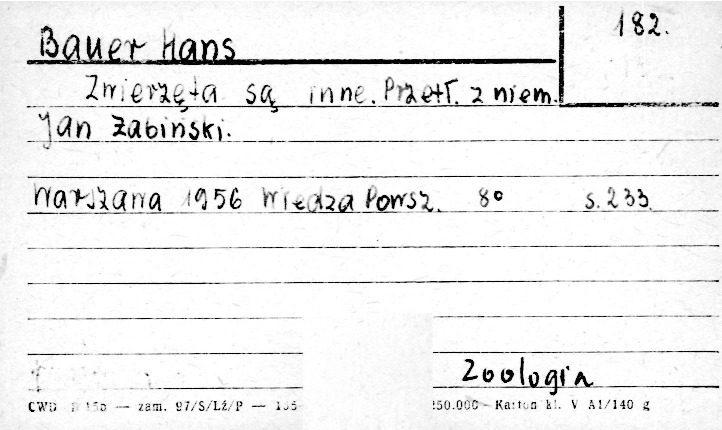 182.
Bauer Hans
Zwierzęta są inne. Przetł. z niem.
Jan Żabiński.
Warszawa 1956 Wiedza Powsz. 8° s. 233.
Zoologia
CWD — zam. 97/S/Lż/P — 250.000 — Karton kl. V A1/140 g